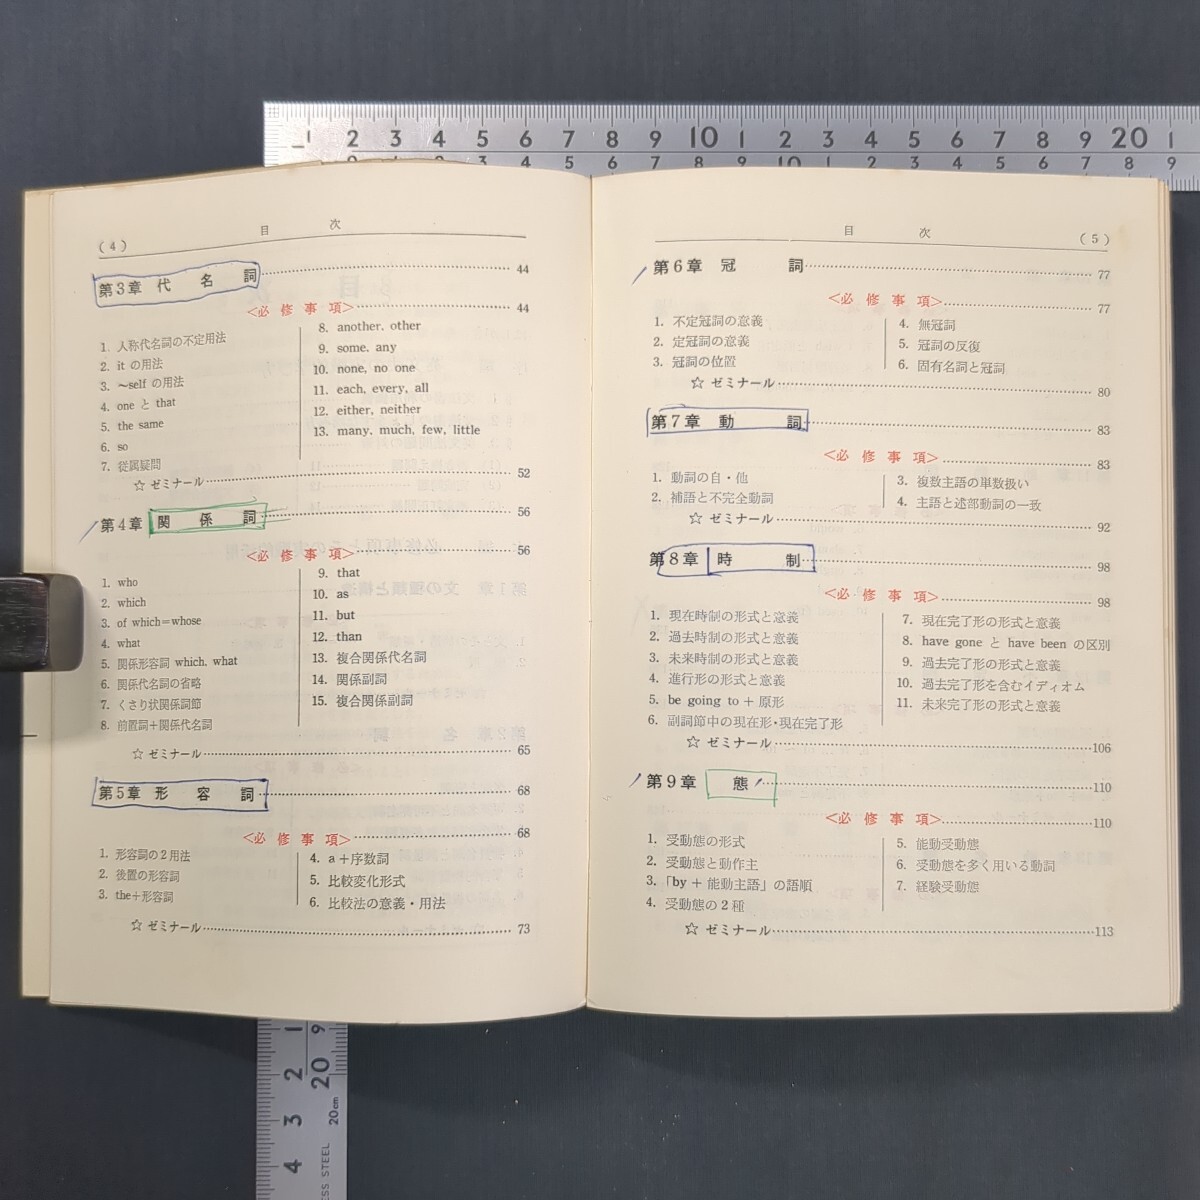 1 2 3 4 5 6 7 8 9 10 1 2 3 4 5 6 7 8 9 20 1
2 3 4 5 6 7 8 9 10 1 2 3 4 5 6 7 8 9
目 次
(4)
第3章 代名詞 44
<必修事項> 44
1. 人称代名詞の不定用法
2. it の用法
3. ～self の用法
4. one と that
5. the same
6. so
7. 従属疑問
8. another, other
9. some, any
10. none, no one
11. each, every, all
12. either, neither
13. many, much, few, little
☆ ゼミナール 52
第4章 関係詞 56
<必修事項> 56
1. who
2. which
3. of which=whose
4. what
5. 関係形容詞 which, what
6. 関係代名詞の省略
7. くさり状関係詞節
8. 前置詞＋関係代名詞
9. that
10. as
11. but
12. than
13. 複合関係代名詞
14. 関係副詞
15. 複合関係副詞
☆ ゼミナール 65
第5章 形容詞 68
<必修事項> 68
1. 形容詞の2用法
2. 後置の形容詞
3. the＋形容詞
4. a＋序数詞
5. 比較変化形式
6. 比較法の意義・用法
☆ ゼミナール 73
目 次
(5)
第6章 冠詞 77
<必修事項> 77
1. 不定冠詞の意義
2. 定冠詞の意義
3. 冠詞の位置
4. 無冠詞
5. 冠詞の反復
6. 固有名詞と冠詞
☆ ゼミナール 80
第7章 動詞 83
<必修事項> 83
1. 動詞の自・他
2. 補語と不完全動詞
3. 複数主語の単数扱い
4. 主語と述部動詞の一致
☆ ゼミナール 92
第8章 時制 98
<必修事項> 98
1. 現在時制の形式と意義
2. 過去時制の形式と意義
3. 未来時制の形式と意義
4. 進行形の形式と意義
5. be going to ＋原形
6. 副詞節中の現在形・現在完了形
7. 現在完了形の形式と意義
8. have gone と have been の区別
9. 過去完了形の形式と意義
10. 過去完了形を含むイディオム
11. 未来完了形の形式と意義
☆ ゼミナール 106
第9章 態 110
<必修事項> 110
1. 受動態の形式
2. 受動態と動作主
3. 「by ＋能動主語」の語順
4. 受動態の2種
5. 能動受動態
6. 受動態を多く用いる動詞
7. 経験受動態
☆ ゼミナール 113
1 2 3 4
9 20
20cm
STEEL